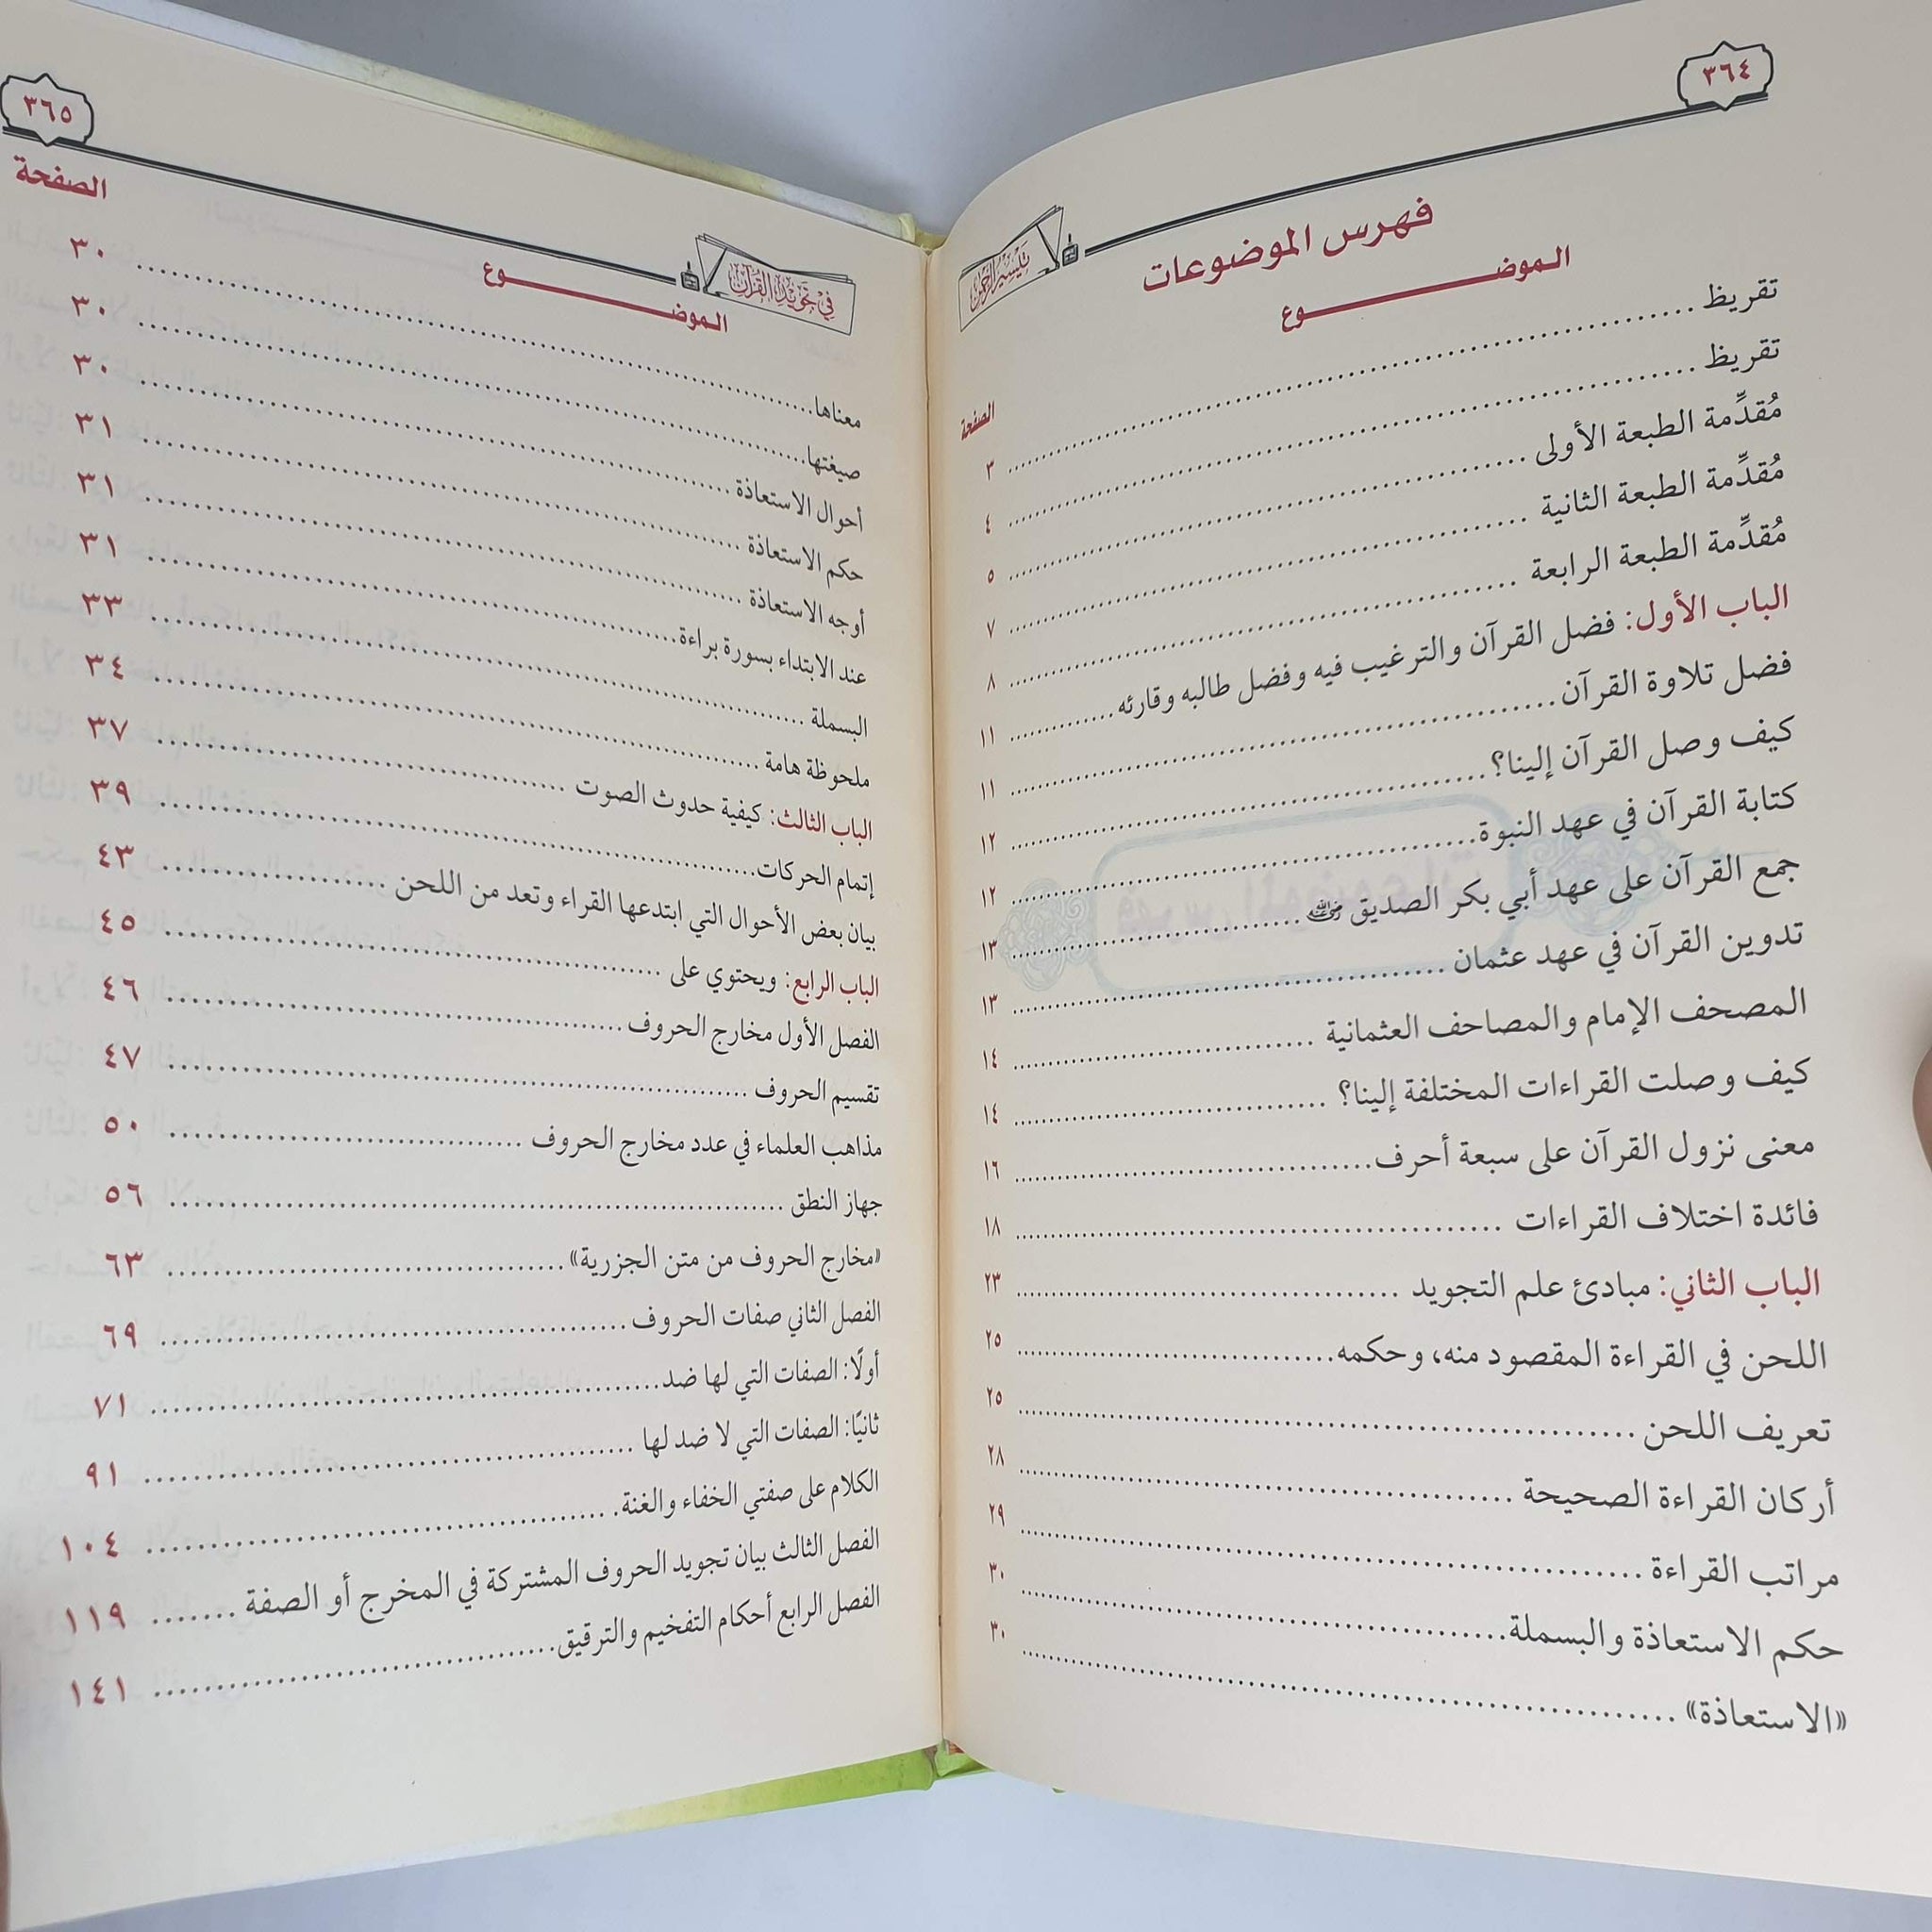 ٣٦٤
تيسير الرحمن
فهرس الموضوعات
الموضـــوع الصفحة
تقريظ ٣
تقريظ ٤
مُقدِّمة الطبعة الأولى ٥
مُقدِّمة الطبعة الثانية ٧
مُقدِّمة الطبعة الرابعة ٨
الباب الأول: فضل القرآن والترغيب فيه وفضل طالبه وقارئه ١١
فضل تلاوة القرآن ١١
كيف وصل القرآن إلينا؟ ١٢
كتابة القرآن في عهد النبوة ١٢
جمع القرآن على عهد أبي بكر الصديق ﵁ ١٣
تدوين القرآن في عهد عثمان ١٣
المصحف الإمام والمصاحف العثمانية ١٤
كيف وصلت القراءات المختلفة إلينا؟ ١٤
معنى نزول القرآن على سبعة أحرف ١٦
فائدة اختلاف القراءات ١٨
الباب الثاني: مبادئ علم التجويد ٢٣
اللحن في القراءة المقصود منه، وحكمه ٢٥
تعريف اللحن ٢٥
أركان القراءة الصحيحة ٢٨
مراتب القراءة ٢٩
حكم الاستعاذة والبسملة ٣٠
«الاستعاذة» ٣٠
٣٦٥
في تجويد القرآن
الموضـــوع الصفحة
معناها ٣٠
صيغتها ٣٠
أحوال الاستعاذة ٣٠
حكم الاستعاذة ٣١
أوجه الاستعاذة ٣١
عند الابتداء بسورة براءة ٣١
البسملة ٣٣
ملحوظة هامة ٣٤
الباب الثالث: كيفية حدوث الصوت ٣٧
إتمام الحركات ٣٩
بيان بعض الأحوال التي ابتدعها القراء وتعد من اللحن ٤٣
الباب الرابع: ويحتوي على ٤٥
الفصل الأول مخارج الحروف ٤٦
تقسيم الحروف ٤٧
مذاهب العلماء في عدد مخارج الحروف ٥٠
جهاز النطق ٥٦
«مخارج الحروف من متن الجزرية» ٦٣
الفصل الثاني صفات الحروف ٦٩
أولًا: الصفات التي لها ضد ٧١
ثانيًا: الصفات التي لا ضد لها ٩١
الكلام على صفتي الخفاء والغنة. ١٠٤
الفصل الثالث بيان تجويد الحروف المشتركة في المخرج أو الصفة ١١٩
الفصل الرابع أحكام التفخيم والترقيق ١٤١